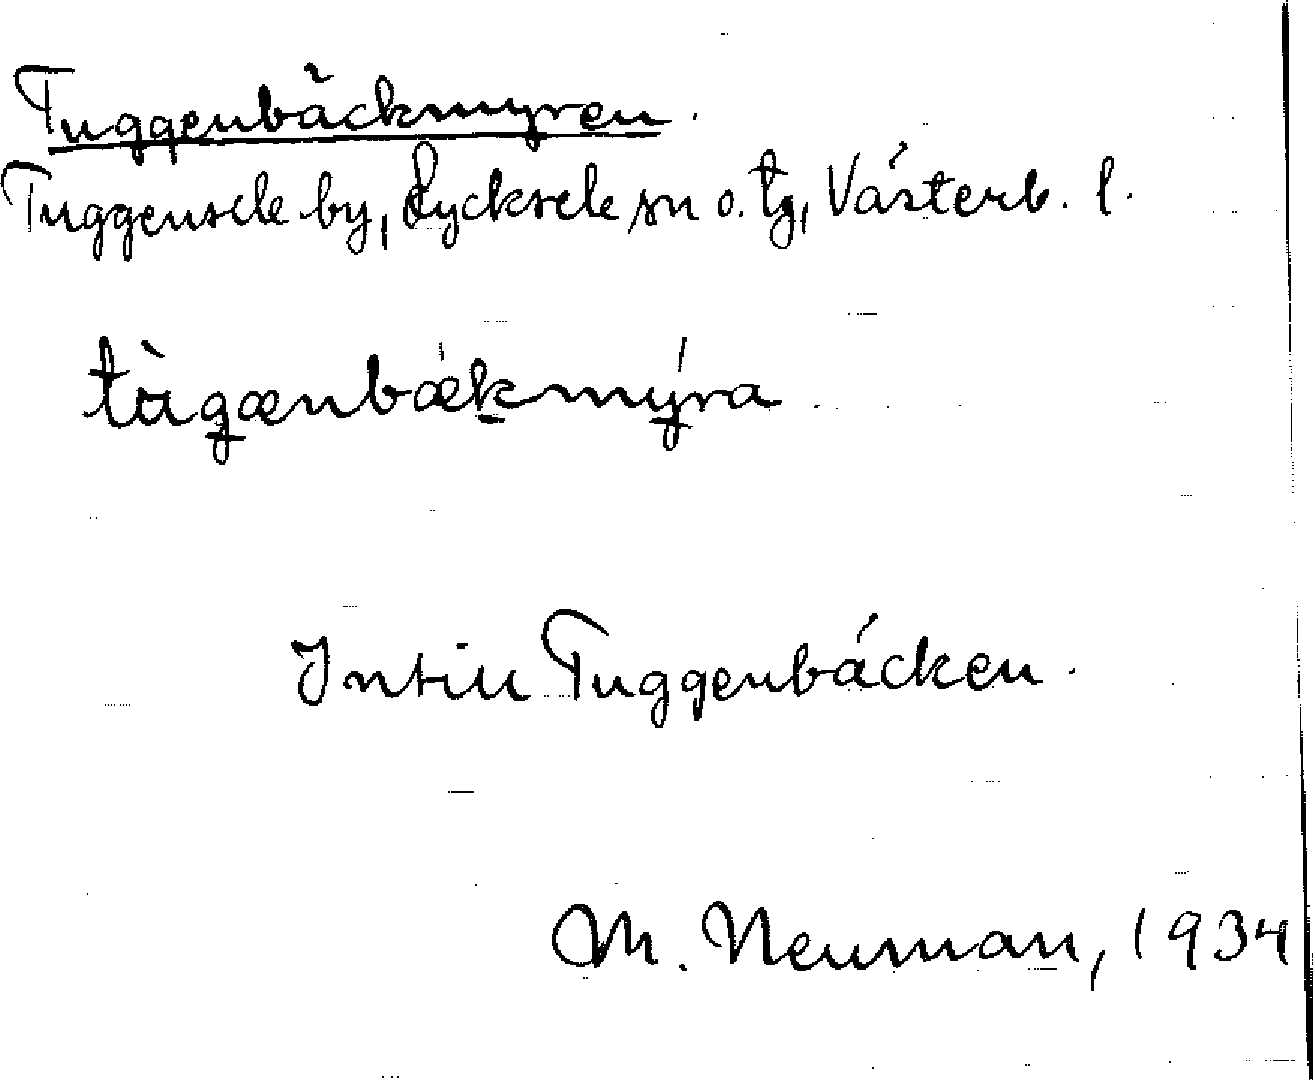 Tuggenbäckmyren.
Tuggensele by, Lycksele sn o. tg, Västerb. l.
tùgænbækmýra
Intill Tuggenbäcken.
M. Neuman, 1934